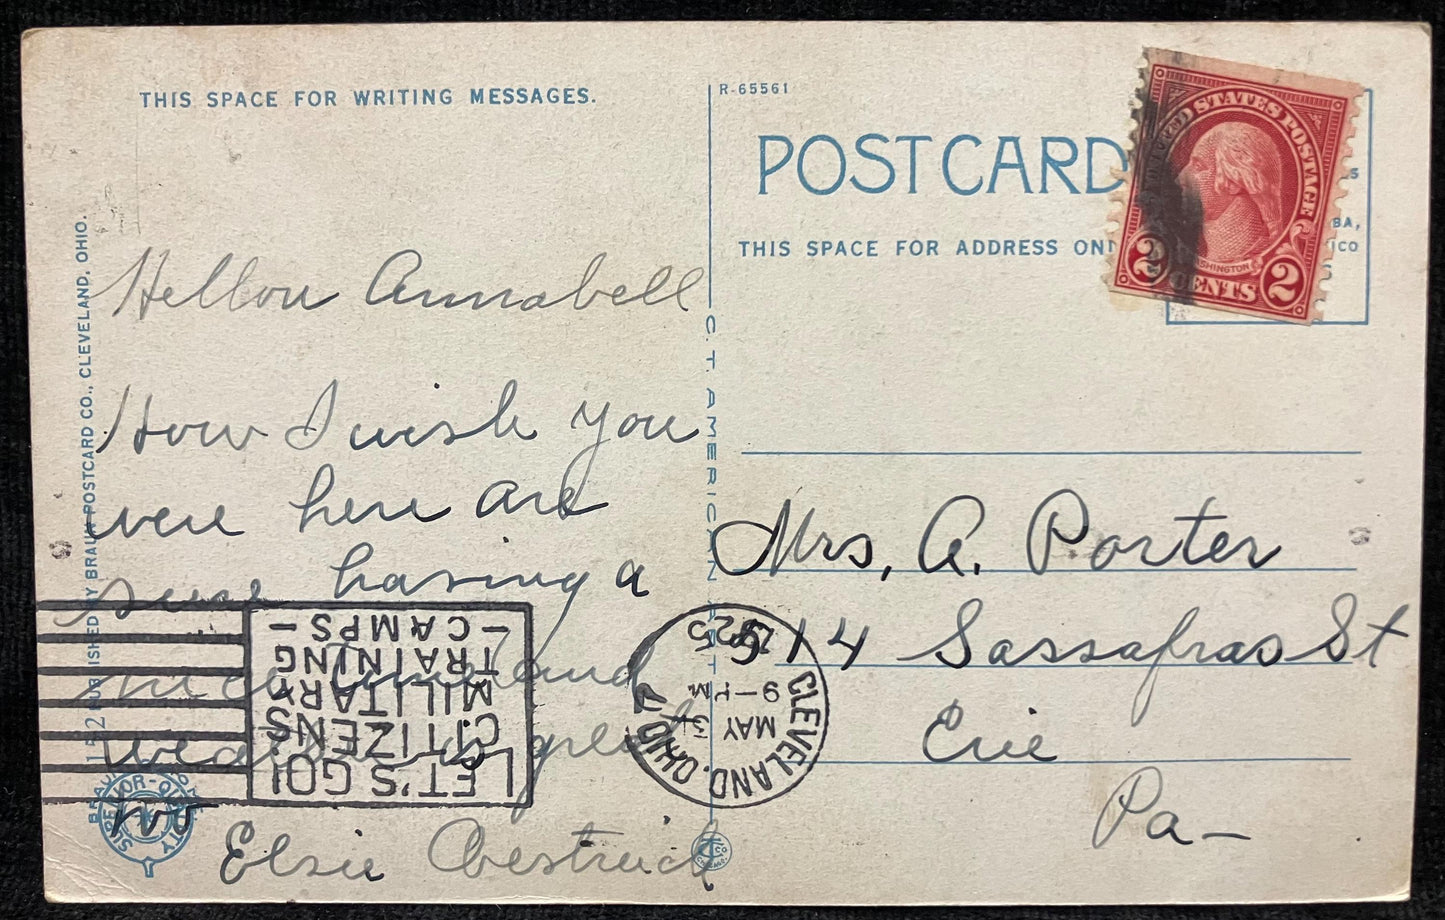 THIS SPACE FOR WRITING MESSAGES.
Hellow Annabell
How I wish you
were here are
sure having a
nice time and
weather is great
Elsie Oestreich
152 PUBLISHED BY BRAUN POSTCARD CO., CLEVELAND, OHIO.
SUPERIOR-QUALITY
C. T. AMERICAN ART
R-65561
POST CARD
THIS SPACE FOR ADDRESS ONL
UNITED STATES POSTAGE
WASHINGTON
2 CENTS 2
BA,
ICO
S
LET'S GO!
CITIZENS
MILITARY
TRAINING
- CAMPS -
CLEVELAND, OHIO
MAY 31
9-PM
1925
Mrs, A. Porter
514 Sassafras St
Erie
Pa-